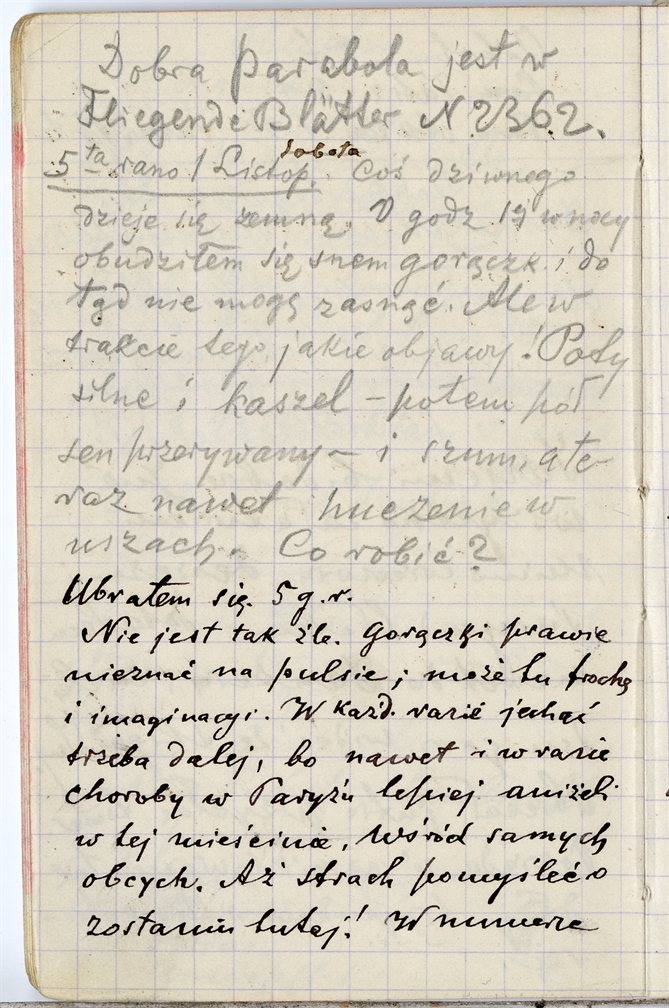 Dobra parabola jest w
Fliegende Blätter N 2362.
sobota
5ta rano 1 Listop. Coś dziwnego
dzieje się zemną. O godz 1½ w nocy
obudziłem się snem gorączk. i do
tąd nie mogę zasnąć. Ale w
trakcie tego jakie objawy! Poty
silne i kaszel – potem pół
sen przerywany – i szum, a te-
raz nawet huczenie w
uszach. Co robić?
Ubrałem się. 5 g. r.
Nie jest tak źle. Gorączki prawie
nieznać na pulsie; może tu trochę
i imaginacyi. W każd. razie jechać
trzeba dalej, bo nawet i w razie
choroby w Paryżu lepiej aniżeli
w tej mieścinie, wśród samych
obcych. Aż strach pomyśleć o
zostaniu tutaj! W numerze